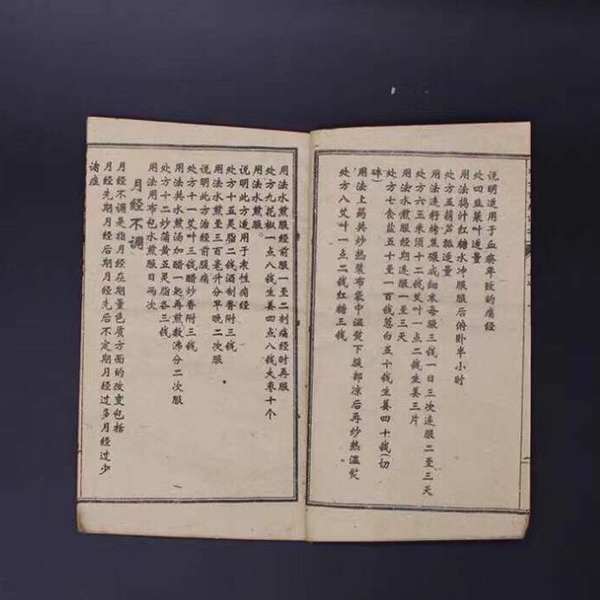 说明适用于血瘀年致的痛经
处四韭菜叶适量
用法捣汁红糖水冲服服后俯卧半小时
处方五葫芦瓤适量
用法连籽烤黑碾成细末每服三钱一日三次连服二至三天
处方六玉米须十二钱艾叶一点二钱生姜三片
用法水煎服经期连服一至三天
处方七食盐五十至一百钱葱白五十钱生姜四十钱(切
碎)
用法上药共炒热装布袋中温熨下腹部凉后再炒热温熨
处方八艾叶一点二钱红糖三钱
用法水煎服经前服一至二剂痛经时再服
处方九花椒一点八钱生姜四点八钱大枣十个
用法水煎服。
说明此方适用于寒性痛经
处方十五灵脂二钱酒制香附三钱
用法水煎至三百毫升分早晚二次服
说明此方治经前腹痛
处方十一艾叶三钱醋炒香附三钱
用法共水煎汤加醋一起再煎数沸分二次服
处方十二炒蒲黄五灵脂各三钱
用法用布包水煎服日两次
月经不调
月经不调是指月经在期量色质方面的改变包括
月经先期月经后期月经先后不定期月经过多月经过少
诸症